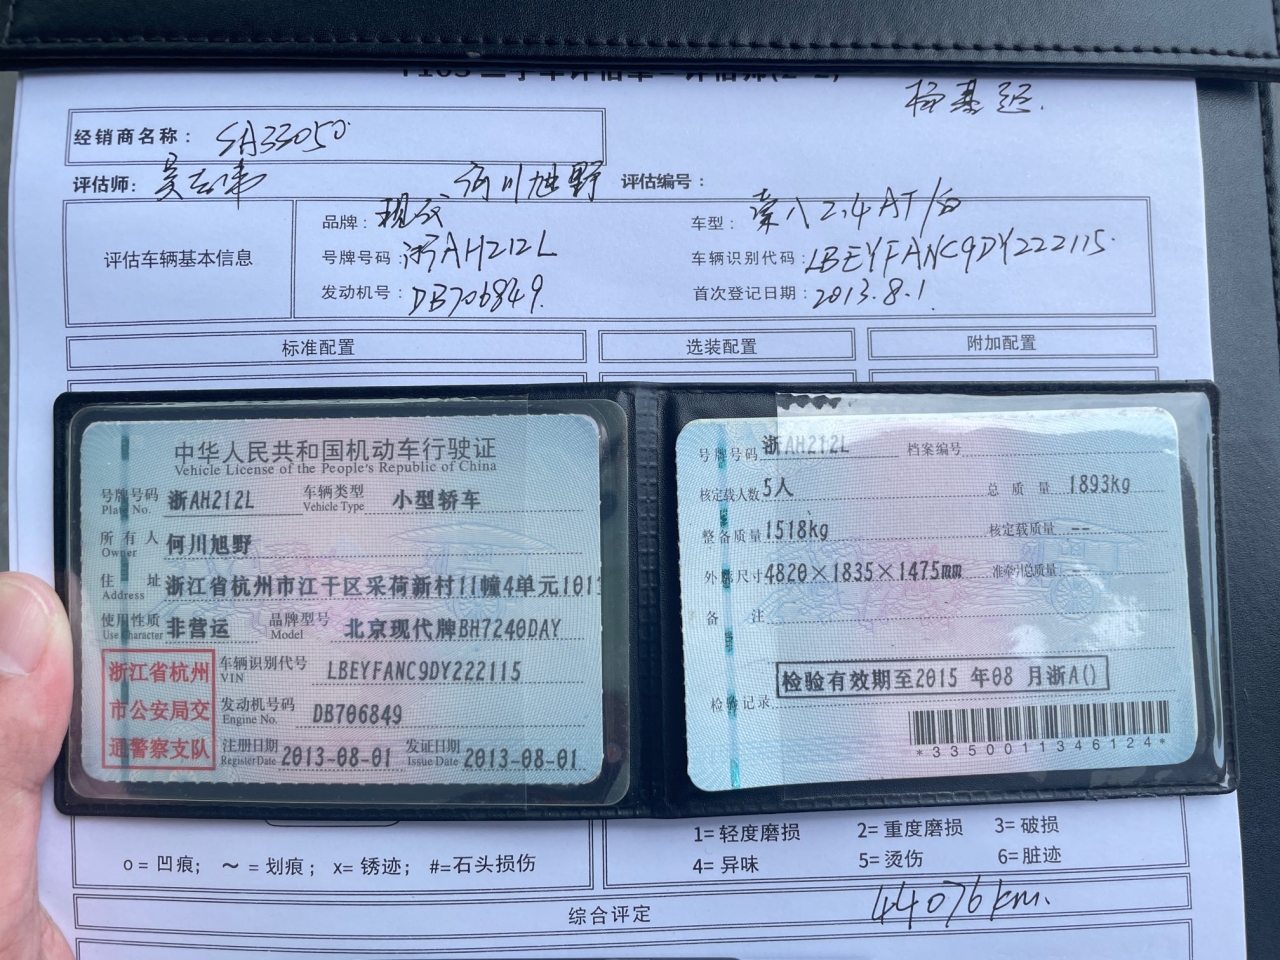 杨基运.
经销商名称： SA33050
评估师： 吴云伟 何川旭野 评估编号：
评估车辆基本信息
品牌： 现代 车型： 索八2.4AT/白
号牌号码： 浙AH212L 车辆识别代码： LBEYFANC9DY222115
发动机号： DB706849. 首次登记日期： 2013.8.1
标准配置 选装配置 附加配置
中华人民共和国机动车行驶证
Vehicle License of the People's Republic of China
号牌号码 浙AH212L 车辆类型 小型轿车
Plate No. Vehicle Type
所有人 何川旭野
Owner
住址 浙江省杭州市江干区采荷新村11幢4单元101
Address
使用性质 非营运 品牌型号 北京现代牌BH7240DAY
Use Character Model
浙江省杭州
市公安局交
通警察支队
车辆识别代号 LBEYFANC9DY222115
VIN
发动机号码 DB706849
Engine No.
注册日期 2013-08-01 发证日期 2013-08-01
Register Date Issue Date
号牌号码 浙AH212L 档案编号
核定载人数 5人 总质量 1893kg
整备质量 1518kg 核定载质量 --
外廓尺寸 4820×1835×1475mm 准牵引总质量 --
备注
检验有效期至2015 年08 月浙A()
检验记录
*3350011346124*
o = 凹痕； ～ = 划痕； x= 锈迹； #=石头损伤
1= 轻度磨损 2= 重度磨损 3= 破损
4= 异味 5= 烫伤 6=脏迹
综合评定 44076km.